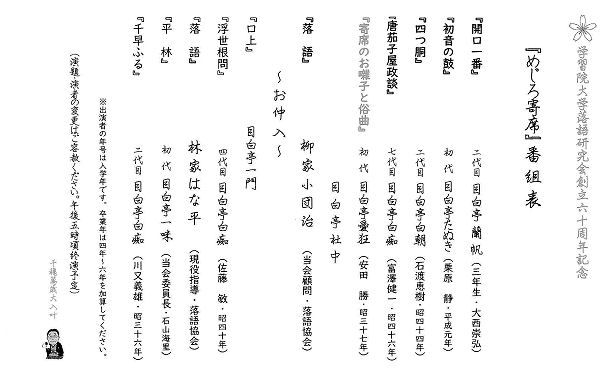 学習院大学落語研究会創立六十周年記念
『めじろ寄席』番組表
『開口一番』 二代目 目白亭 蘭帆 (三年生・大西崇弘)
『初音の鼓』 初代 目白亭たぬき (栗原 静・平成元年)
『四つ胴』 二代目 目白亭白朝 (石渡恵樹・昭四十四年)
『唐茄子屋政談』 七代目 目白亭白痴 (富澤健一・昭四十六年)
『寄席のお囃子と俗曲』 初代 目白亭愛狂 (安田 勝・昭三十七年)
目白亭社中
『落語』 柳家小団治 (当会顧問・落語協会)
~お仲入~
『口上』 目白亭一門
『浮世根問』 四代目 目白亭白痴 (佐藤 敏・昭四十年)
『落語』 林家はな平 (現役指導・落語協会)
『平林』 初代 目白亭一味 (当会委員長・石山海里)
『千早ふる』 二代目 目白亭白痴 (川又義雄・昭三十六年)
※出演者の年号は入学年です。卒業年は四年~六年を加算してください。
(演題・演者の変更はご容赦ください。午後五時頃終演予定)
千穐萬歳大入叶